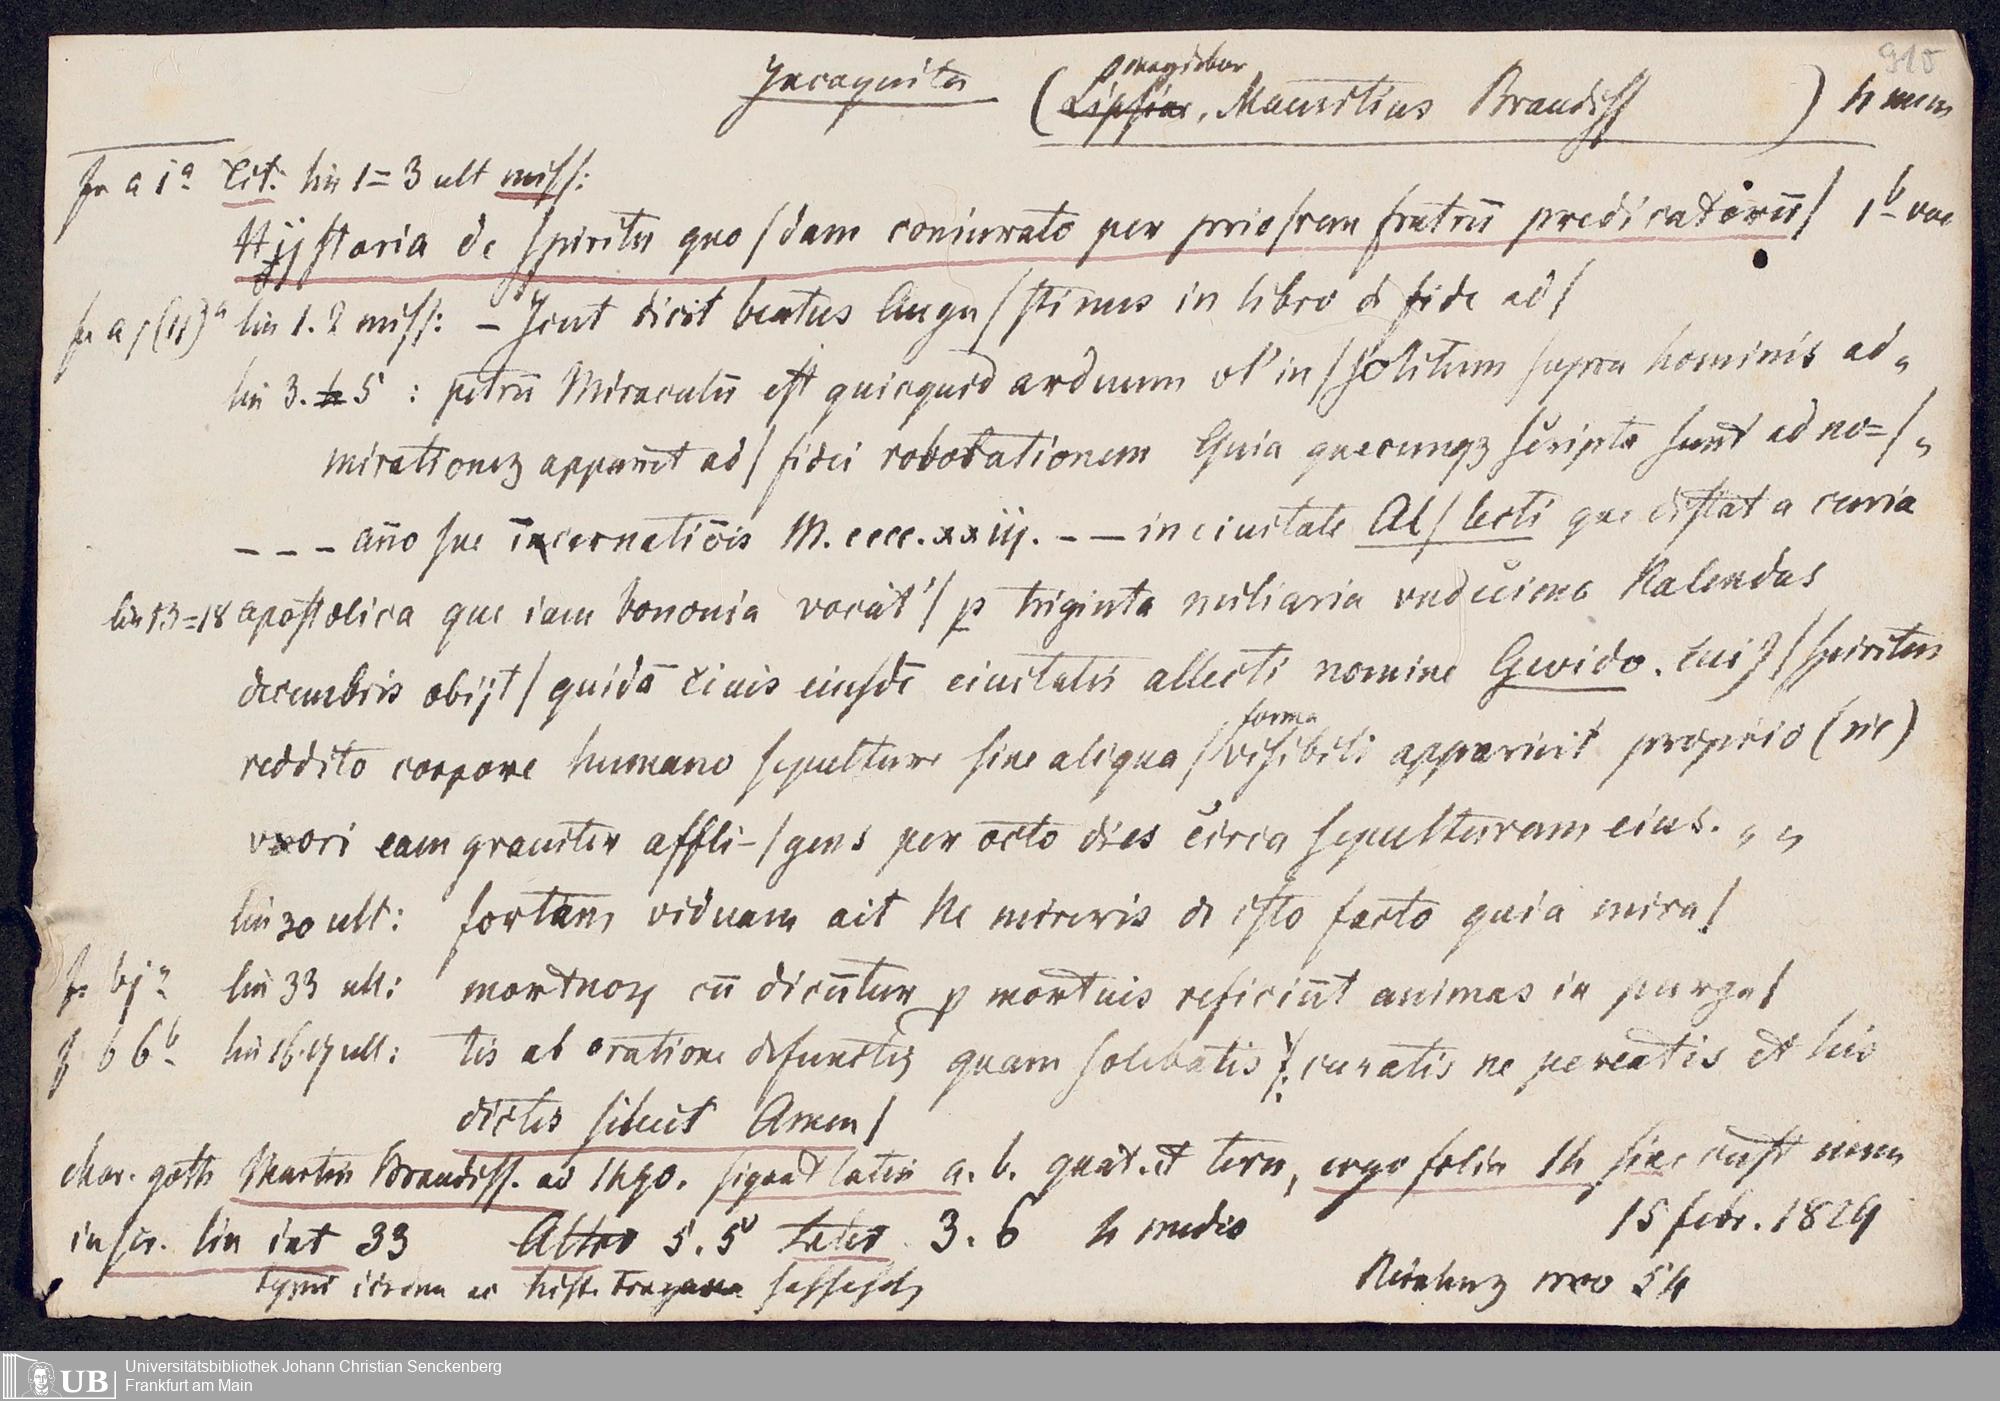 915
Incognita (Lipsiae, Mauritius Brandiss ) 4 mem
magdebur
fr a 1ª tit: lin 1=3 ult miss:
Hÿstoria de spiritu quo/dam coniurato per prio/rem fratrū predicatorū/ 1b vac
fr a j(ij)ª lin 1. 2 miss: – Icut dicit beatus Augu/stinus in libro d fide ad/
lin 3. 5 : petrū Miraculū est quicquid arduum vl' in/solitum supra hominis ad„
mirationeȝ apparēt ad/ fidei roborationem Quia quecunqȝ scripta sunt ad no=/„
– – – año sue incarnatiōis M. cccc. xxiij. – – in ciuitate Al/lecti que distat a curia
lin 13=18 apostolica que iam bononia vocat'/ p triginta miliaria vndecimo Kalendas
decembris obijt/ quidā ciuis eiusdē ciuitatis allecti nomine Gwido. cuiȝ/ spiritus
reddito corpore humano sepulture sine aliqua /visibili apparuit proprio (sic)
forma
vxori eam grauiter affli–/gens per octo dies circa sepulturam eius. „ „
lin 30 ult: fortam viduam ait Ne mireris de isto facto quia mira/
fr bjª lin 33 ult: mortuoȝ cū dicūtur p mortuis reficiūt animas in purga/
f. b 6b lin 16.17 ult: tis ab oratione defunctis quam solebatis/: curatis ne pereatis et his
dictis siluit Amen/
char. goth Martin Brandiss. ad 1490. signat latin a. b. quat. et tern, ergo folia 14 sine cust num
inscr. lin int 33 Altero 5. 5 Later 3. 6 4 medio 15 febr. 1829
typus idem ac hist. 
nro 54
Universitätsbibliothek Johann Christian Senckenberg
Frankfurt am Main
UB